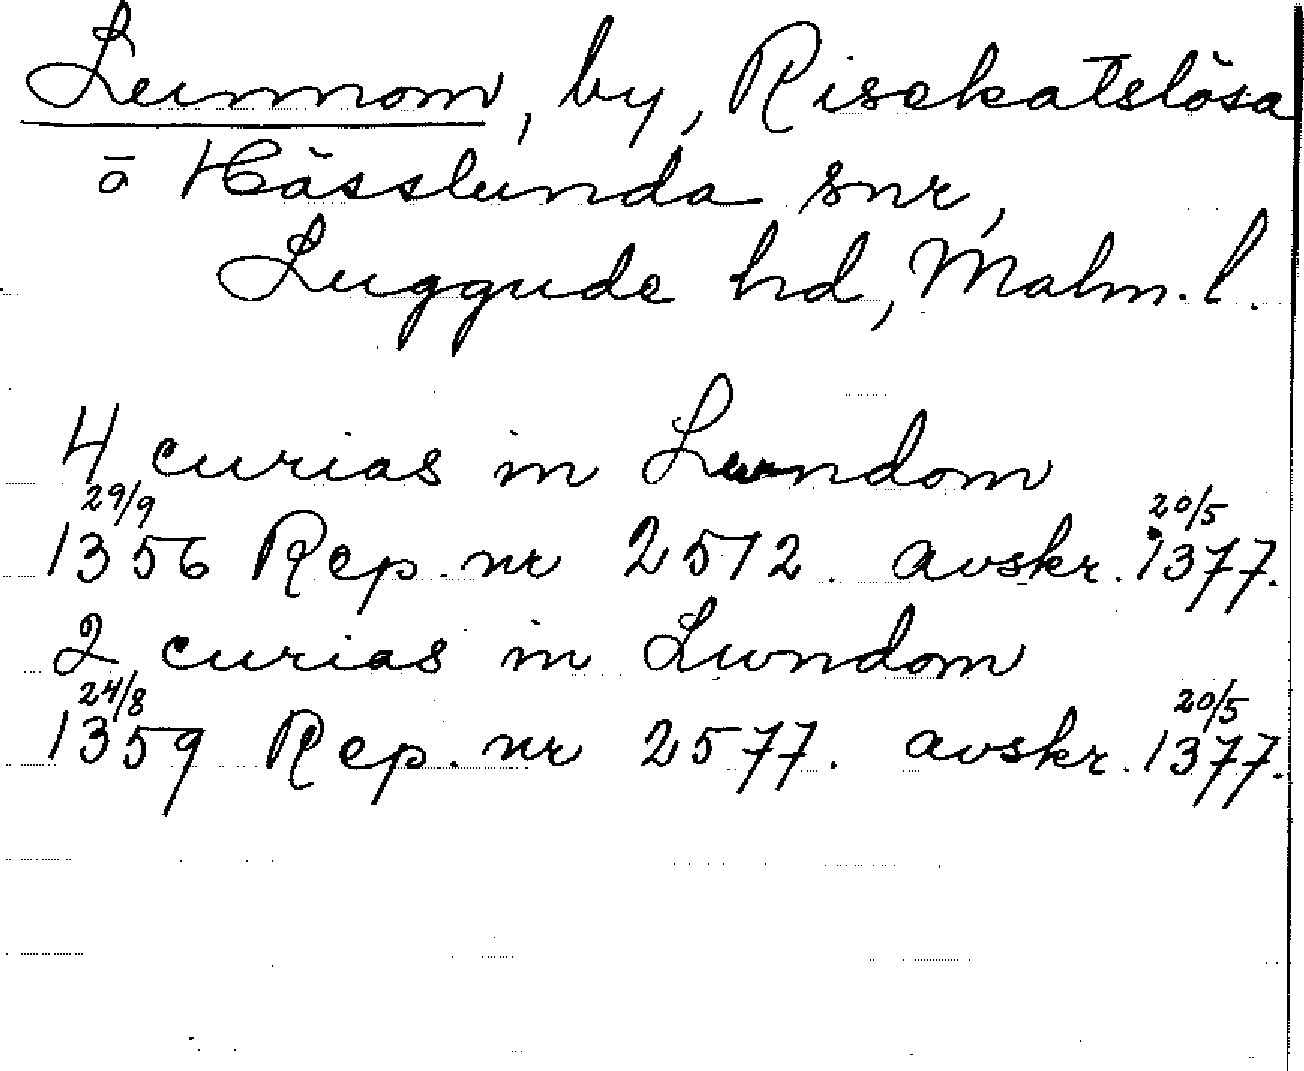 Lunnom, by, Risekatslösa
o Hässlunda snr,
Luggude hd, Malm. l.
4 curias in Lundom
29/9
1356 Rep. nr 2512. avskr. 20/5 1377.
2 curias in Lundom
24/8
1359 Rep. nr 2577. avskr. 20/5 1377.